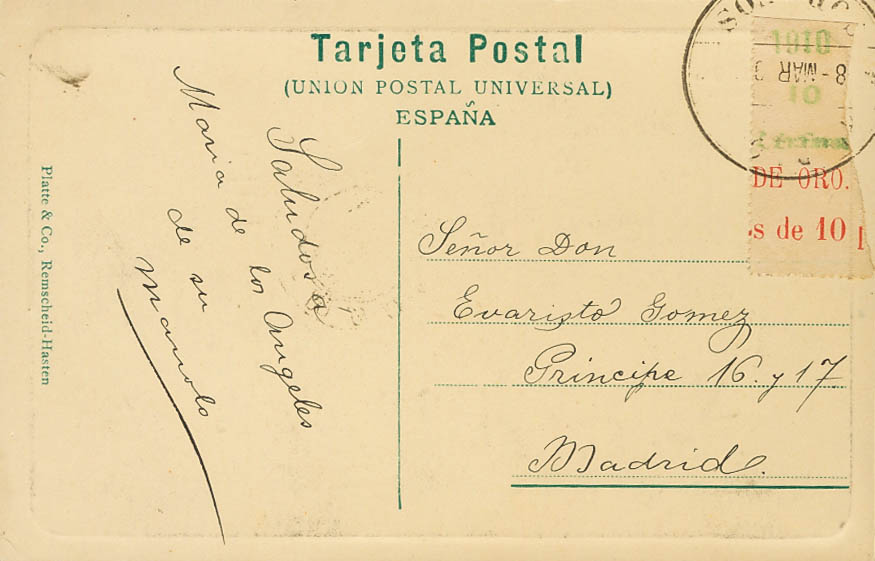 Tarjeta Postal
(UNION POSTAL UNIVERSAL)
ESPAÑA
1910
8 - MAR
10
DE ORO.
s de 10
Saludos a
Maria de los Angeles
de su
Manolo
Señor Don
Evaristo Gomez
Principe 16 y 17
Madrid.
Platte & Co., Remscheid-Hasten